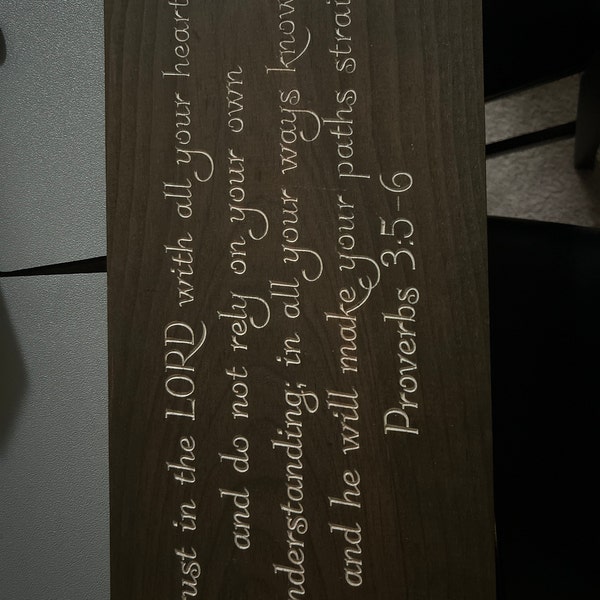 rust in the LORD with all your heart
and do not rely on your own
nderstanding; in all your ways know
and he will make your paths strai
Proverbs 3:5-6